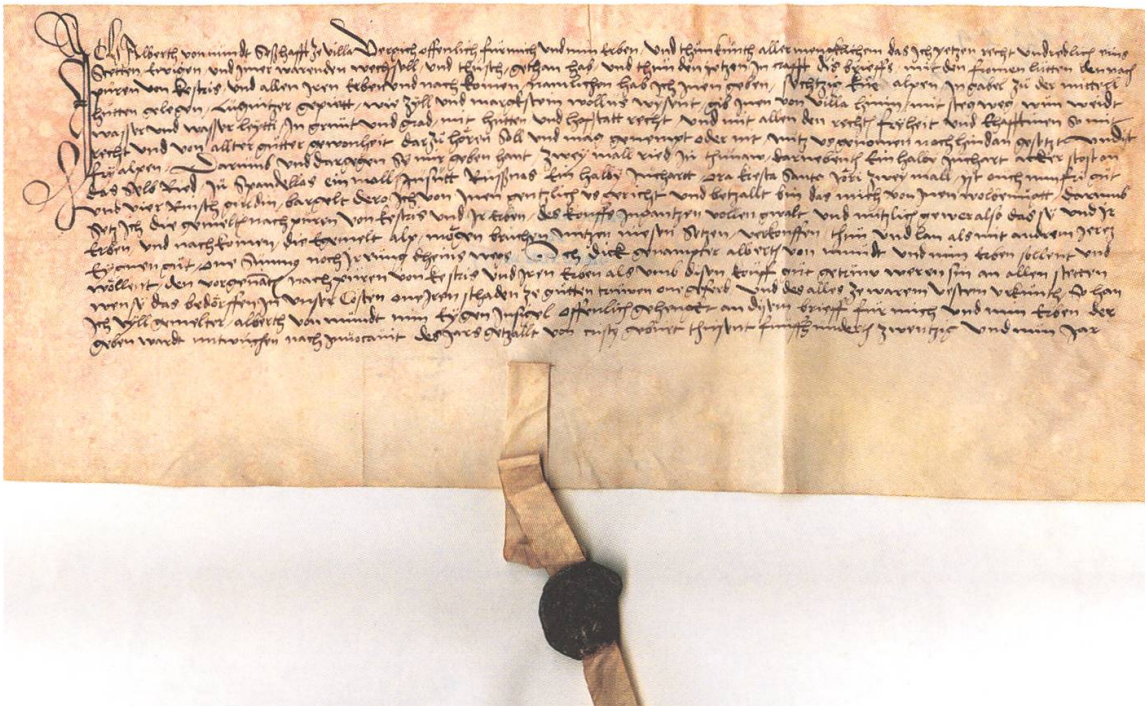 Ich Alberth von mündt Seßhafft ze villa Vergich offenlich für mich und min Erben, Und thůn kunth aller mencklichen das ich yetzen recht und redlich eins
Stetten Ewigen und ymer warenden wechsell, und thusch, gethan hab, und thůn den yetzen in crafft dis brieffs, mit den fromen lütten den nach
puren von kestris, und allen Iren Erben und nach komen, namlichen hab ich Inen geben, sechtzig küe alpen, In gaber zů der mittere
hütten gelegen, Lugnitzer gepirtt, wie zyll und marckstein wollus wysent, gib inen von villa hinin, mit steg weg, wun weidt
wasser und wasser leytti, In grünt und grad, mit hütten und hofstatt recht und mit allen den rechten fryheit und Ehafftinen so mit
recht und von allter gůtter gewonheit dar zů hören soll und mag genempt oder nit nütz usgenomen noch hindan gesetzt
fry alpen, Darumb und dargegen sy mir geben hant, zwey mall ried In darnebent Ein halb Juchart acker stost an
das Sels Ried, In Spandellas ein mall, In sutt Ein halb Juchart Cresta Sant Jöri zwey mall, ist ouch min fry gůt
und vier Rinsch guldin, bargelt dero ich von inen gentzlich us gericht und betzallt bin das mich von inen wolbenügtt, darumb
Setz ich die gemelten nach puren von kestris und Ir Erben, des kouffs In gantzen vollen gwalt, und nütlich gewer also das sy und Ir
Erben und nach komen, die egemelt alp, mögen bruchen nutzen niessen Setzen, verkouffen, thůn und lan als mit anderem Irem
Eygnen gůt, one Sumig noch Irrung theins wegs, Ich dick genampter albertt von mündt und min Erben sollent und
wöllent, den vorgenan. nach püren von kestris und Iren Erben als umb disen gůt getrüw weren sin an allen stetten
wen sy das bedörffen In unser Costen one Iren schaden ze gůtten trüwen one geferd und des alles ze warem vestem urkünth, So han
Ich vyll gemelter, alberth von mündt min Eygen Insigel offenlich gehenckt an disem brieff für mich und min Erben der
geben wardt mitwuchen nach Invocavit des Jars getzallt von cristy gebürt thusent fünffhünderth zwentzig und nün Jar